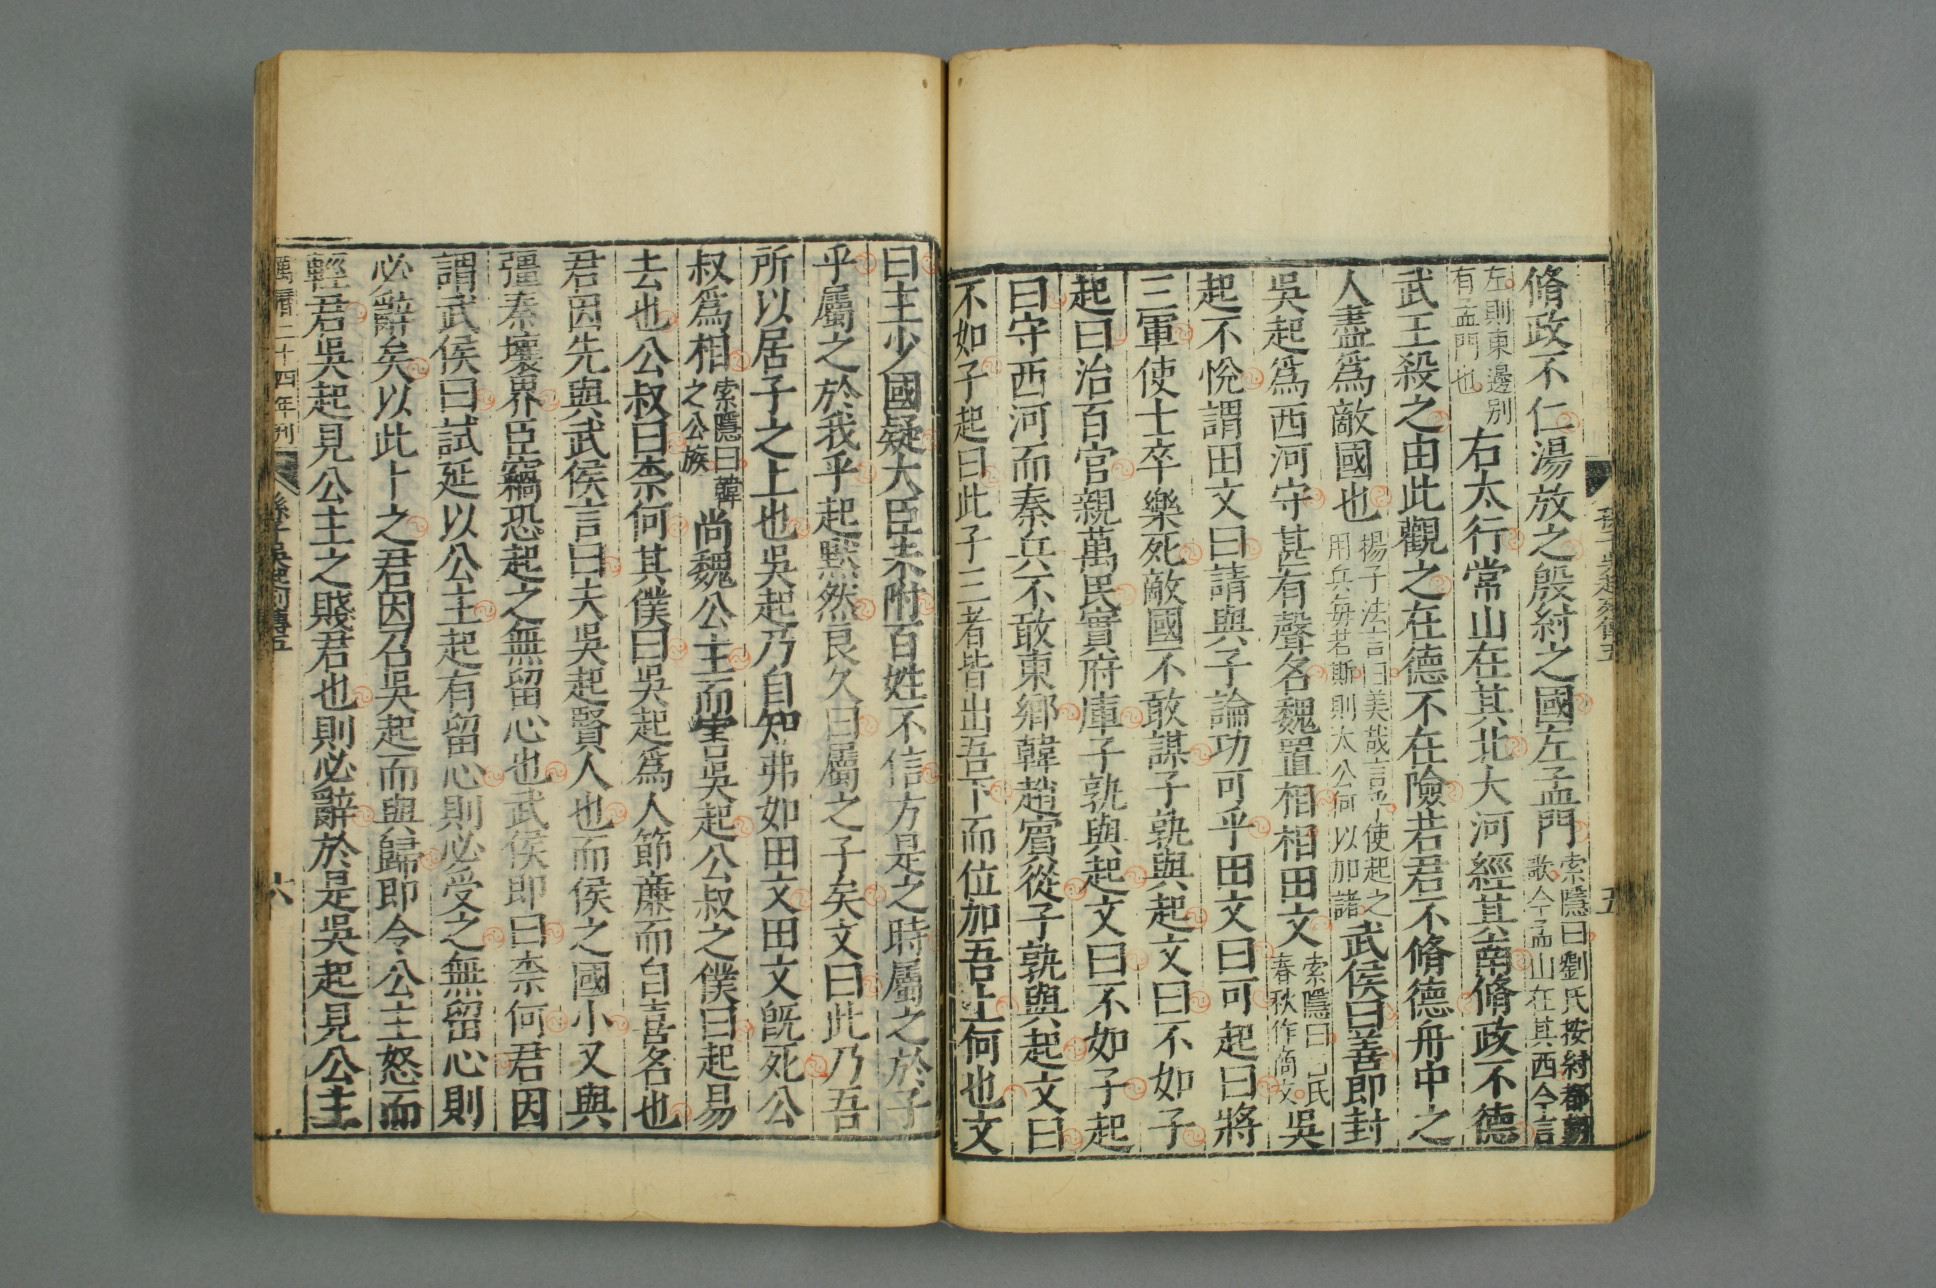 脩政不仁湯放之殷紂之國左孟門索隱曰劉氏按紂都朝
歌今孟山在其西今言
左則東邊別
有孟門也右太行常山在其北大河經其南脩政不德
武王殺之由此觀之在德不在險若君不脩德舟中之
人盡爲敵國也楊子法言曰美哉言乎使起之
用兵每若斯則太公何以加諸武侯曰善即封
吳起爲西河守甚有聲名魏置相相田文索隱曰呂氏
春秋作商文吳
起不悅謂田文曰請與子論功可乎田文曰可起曰將
三軍使士卒樂死敵國不敢謀子孰與起文曰不如子
起曰治百官親萬民實府庫子孰與起文曰不如子起
曰守西河而秦兵不敢東鄉韓趙賓從子孰與起文曰
不如子起曰此子三者皆出吾下而位加吾上何也文
孫子吳起列傳五
五
曰主少國疑大臣未附百姓不信方是之時屬之於子
乎屬之於我乎起默然良久曰屬之子矣文曰此乃吾
所以居子之上也吳起乃自知弗如田文田文旣死公
叔爲相索隱曰韓
之公族尚魏公主而害吳起公叔之僕曰起易
去也公叔曰柰何其僕曰吳起爲人節亷而自喜名也
君因先與武侯言曰夫吳起賢人也而侯之國小又與
彊秦壤界臣竊恐起之無留心也武侯即曰柰何君因
謂武侯曰試延以公主起有留心則必受之無留心則
必辭矣以此卜之君因召吳起而與歸即令公主怒而
輕君吳起見公主之賤君也則必辭於是吳起見公主
萬曆二十四年刊
孫子吳起列傳五
六